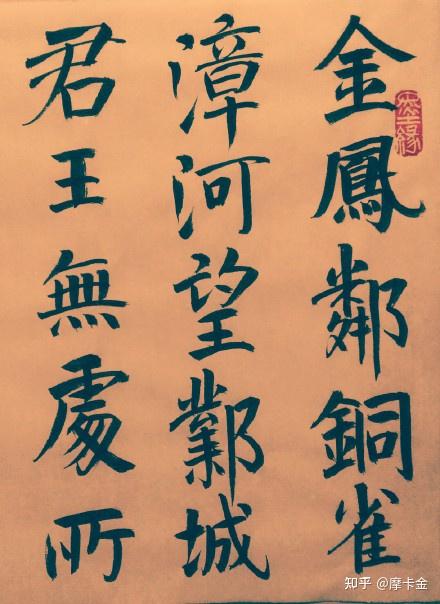 金鳳鄰銅雀
漳河望鄴城
君王無處所
墨緣
知乎 @摩卡金